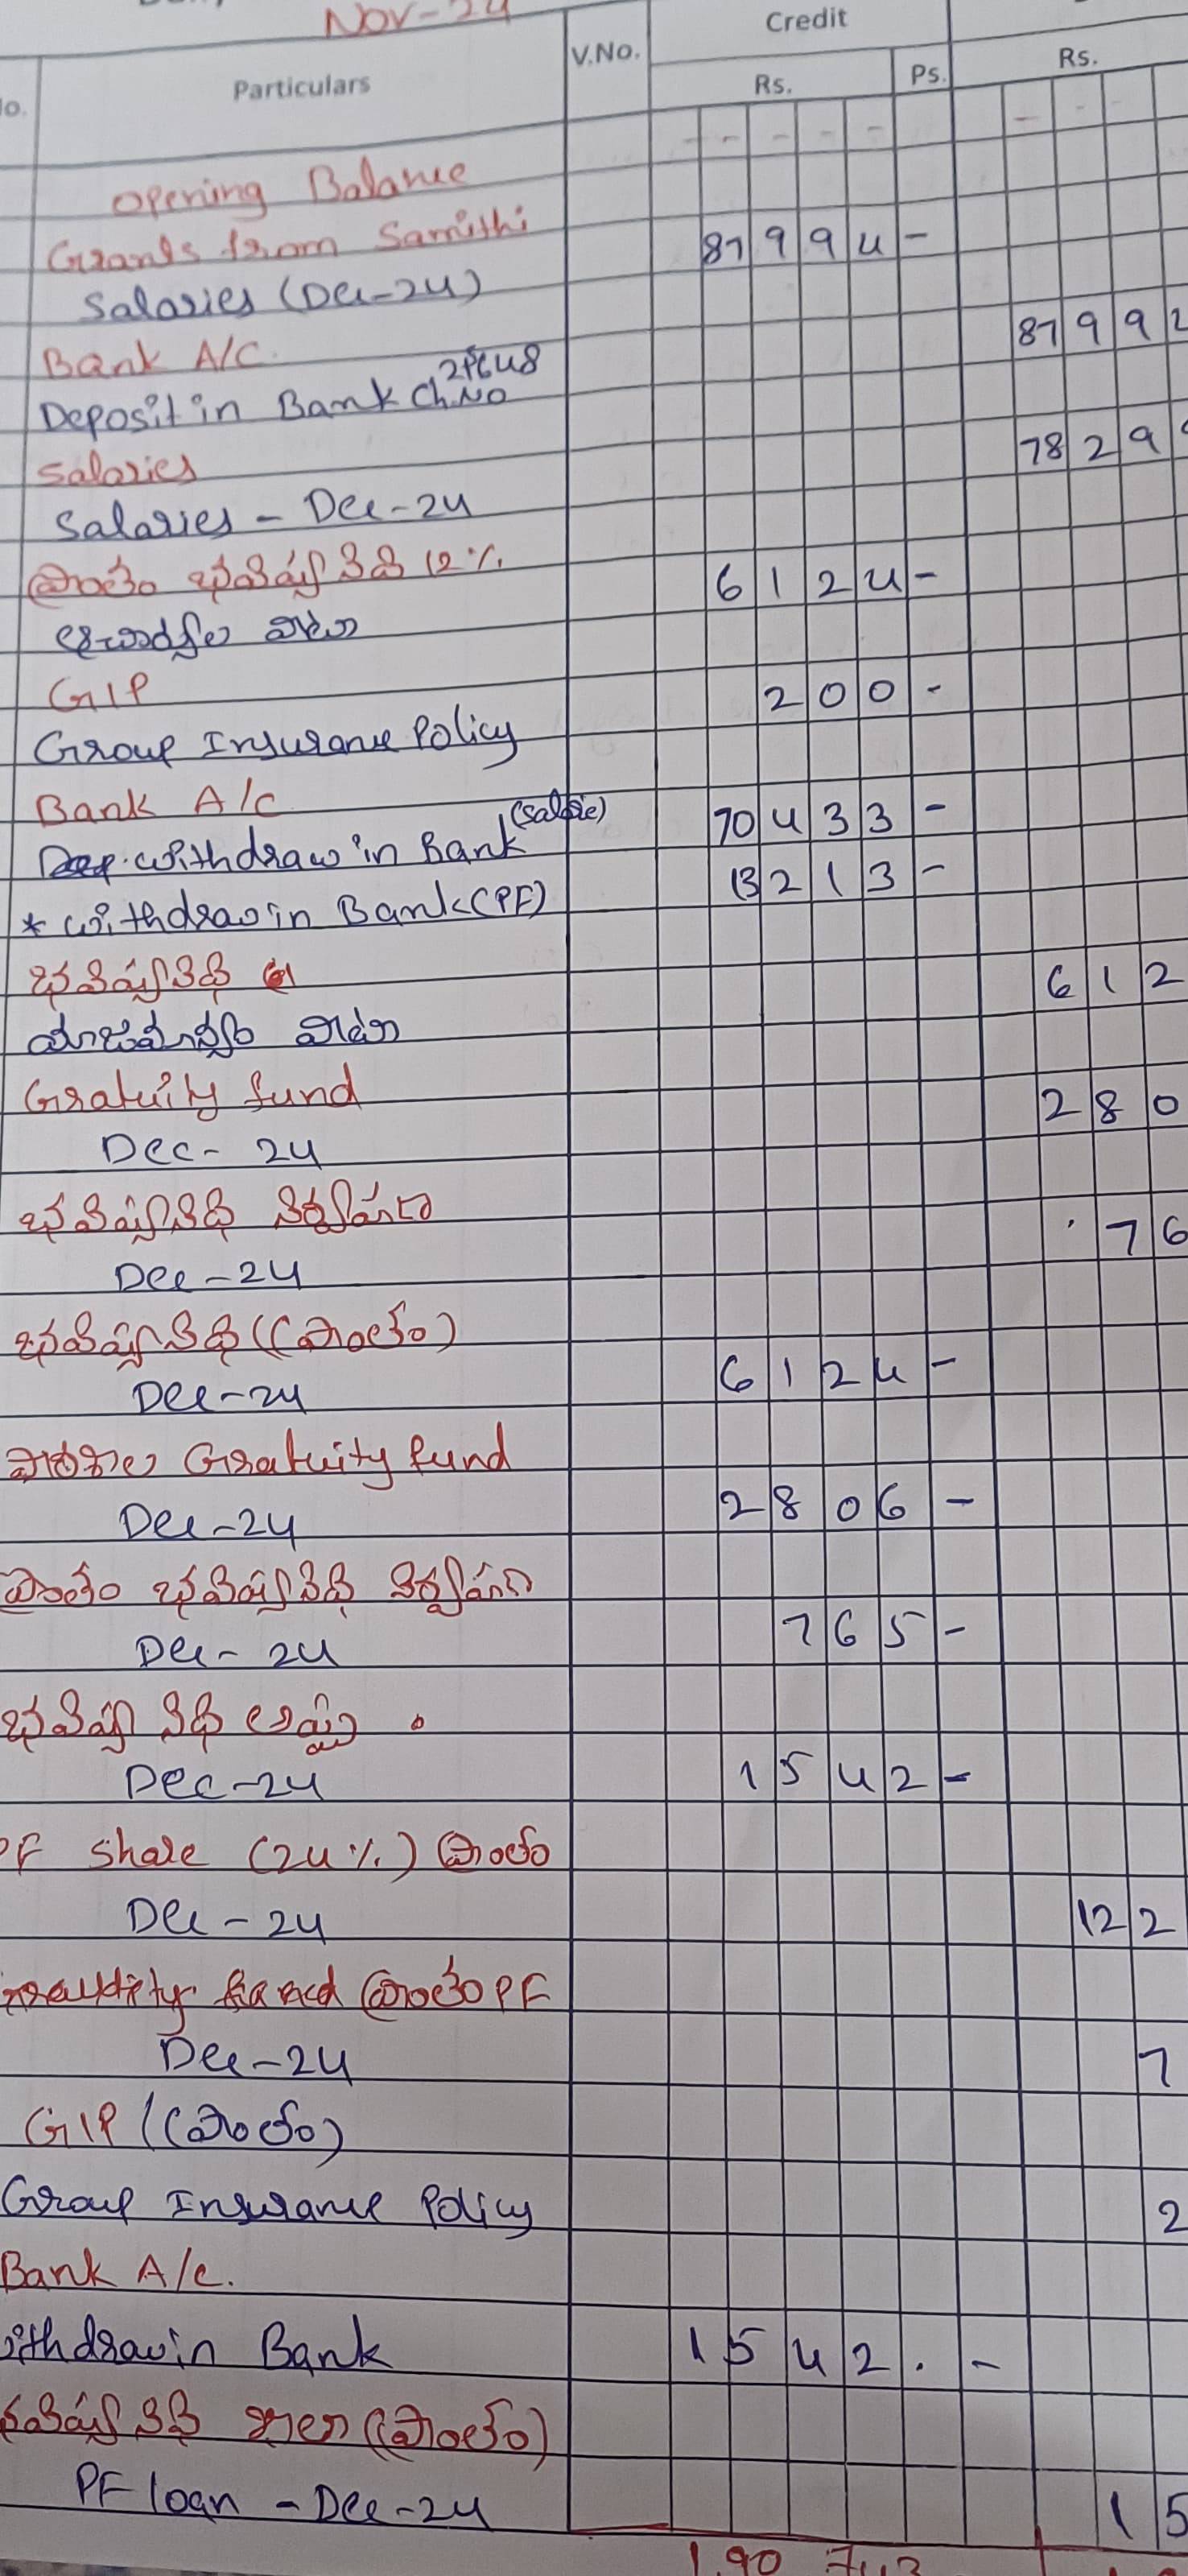 Nov-24
Credit
No. Particulars V.No. Rs. Ps. Rs.
Opening Balance
Grants from Samithi
Salaries (Dec-24) 87994-
Bank A/C
Deposit in Bank Ch.No 8799
Salaries
Salaries - Dec-24 7829
12%
6124-
GIP
Group Insurance Policy 200-
Bank A/C
withdraw in Bank (Salarie) 70433-
* withdraw in Bank (PF) 13213-
భవిష్యనిధి
612
Gratuity fund
Dec- 24 280
భవిష్యనిధి
Dec-24 76
భవిష్యనిధి (ప్రాంతం)
Dec-24 6124-
Gratuity fund
Dec-24 2806-
ప్రాంతం భవిష్యనిధి
Dec- 24 765-
భవిష్య నిధి
Dec-24 1542-
PF Share (24%) ప్రాంతం
Dec-24 122
ప్రాంతం PF
Dec-24 7
GIP (ప్రాంతం)
Group Insurance Policy 2
Bank A/c.
withdraw in Bank 1542.-
భవిష్యనిధి (ప్రాంతం)
PF loan - Dec-24 15
1,90 743